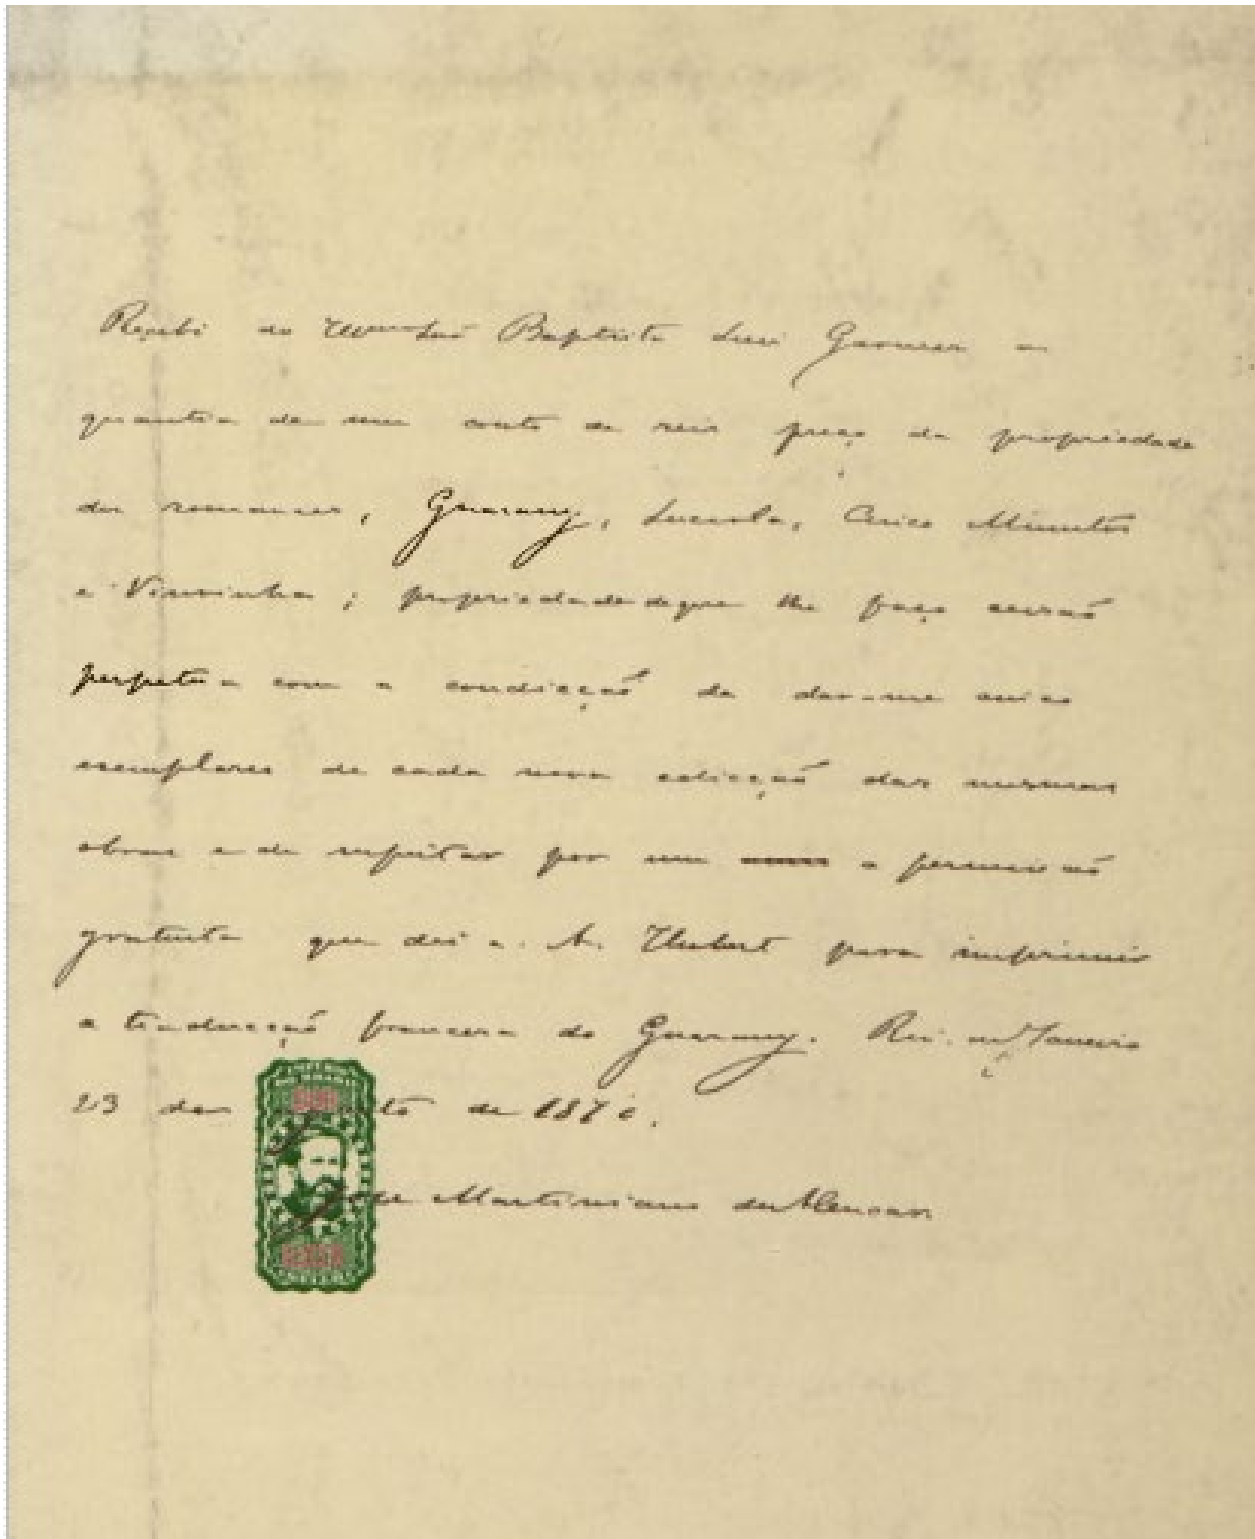 Recebi do Illmo Snr Baptista Luiz Garnier a
quantia de um conto de reis preço da propriedade
dos romances, Guarany, Luciola, Cinco Minutos
e Viuvinha; propriedade de que lhe faço cessaõ
perpetua com a condicçaõ de dar-me cinco
exemplares de cada nova edicçaõ das mesmas
obras e de respeitar por um a permissaõ
gratuita que dei a A. Hubert para imprimir
a traducçaõ francesa do Guarany. Rio de Janeiro
23 de de 1870.
José Martiniano de Alencar